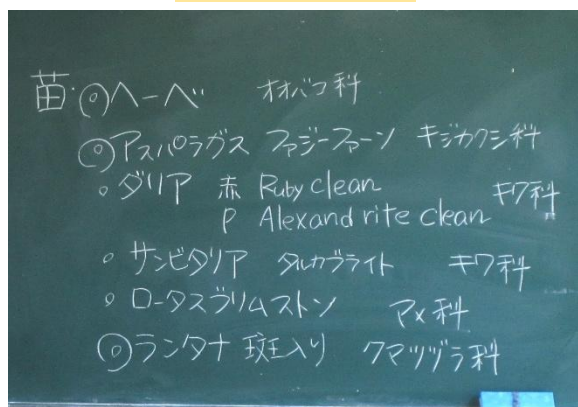 苗・◎ヘーベ オオバコ科
◎アスパラガス ファジーファーン キジカクシ科
○ダリア 赤 Ruby clean キク科
P Alexand rite clean
○サンビタリア タルカブライト キク科
○ロータスブリムストン マメ科
◎ランタナ 斑入り クマツヅラ科